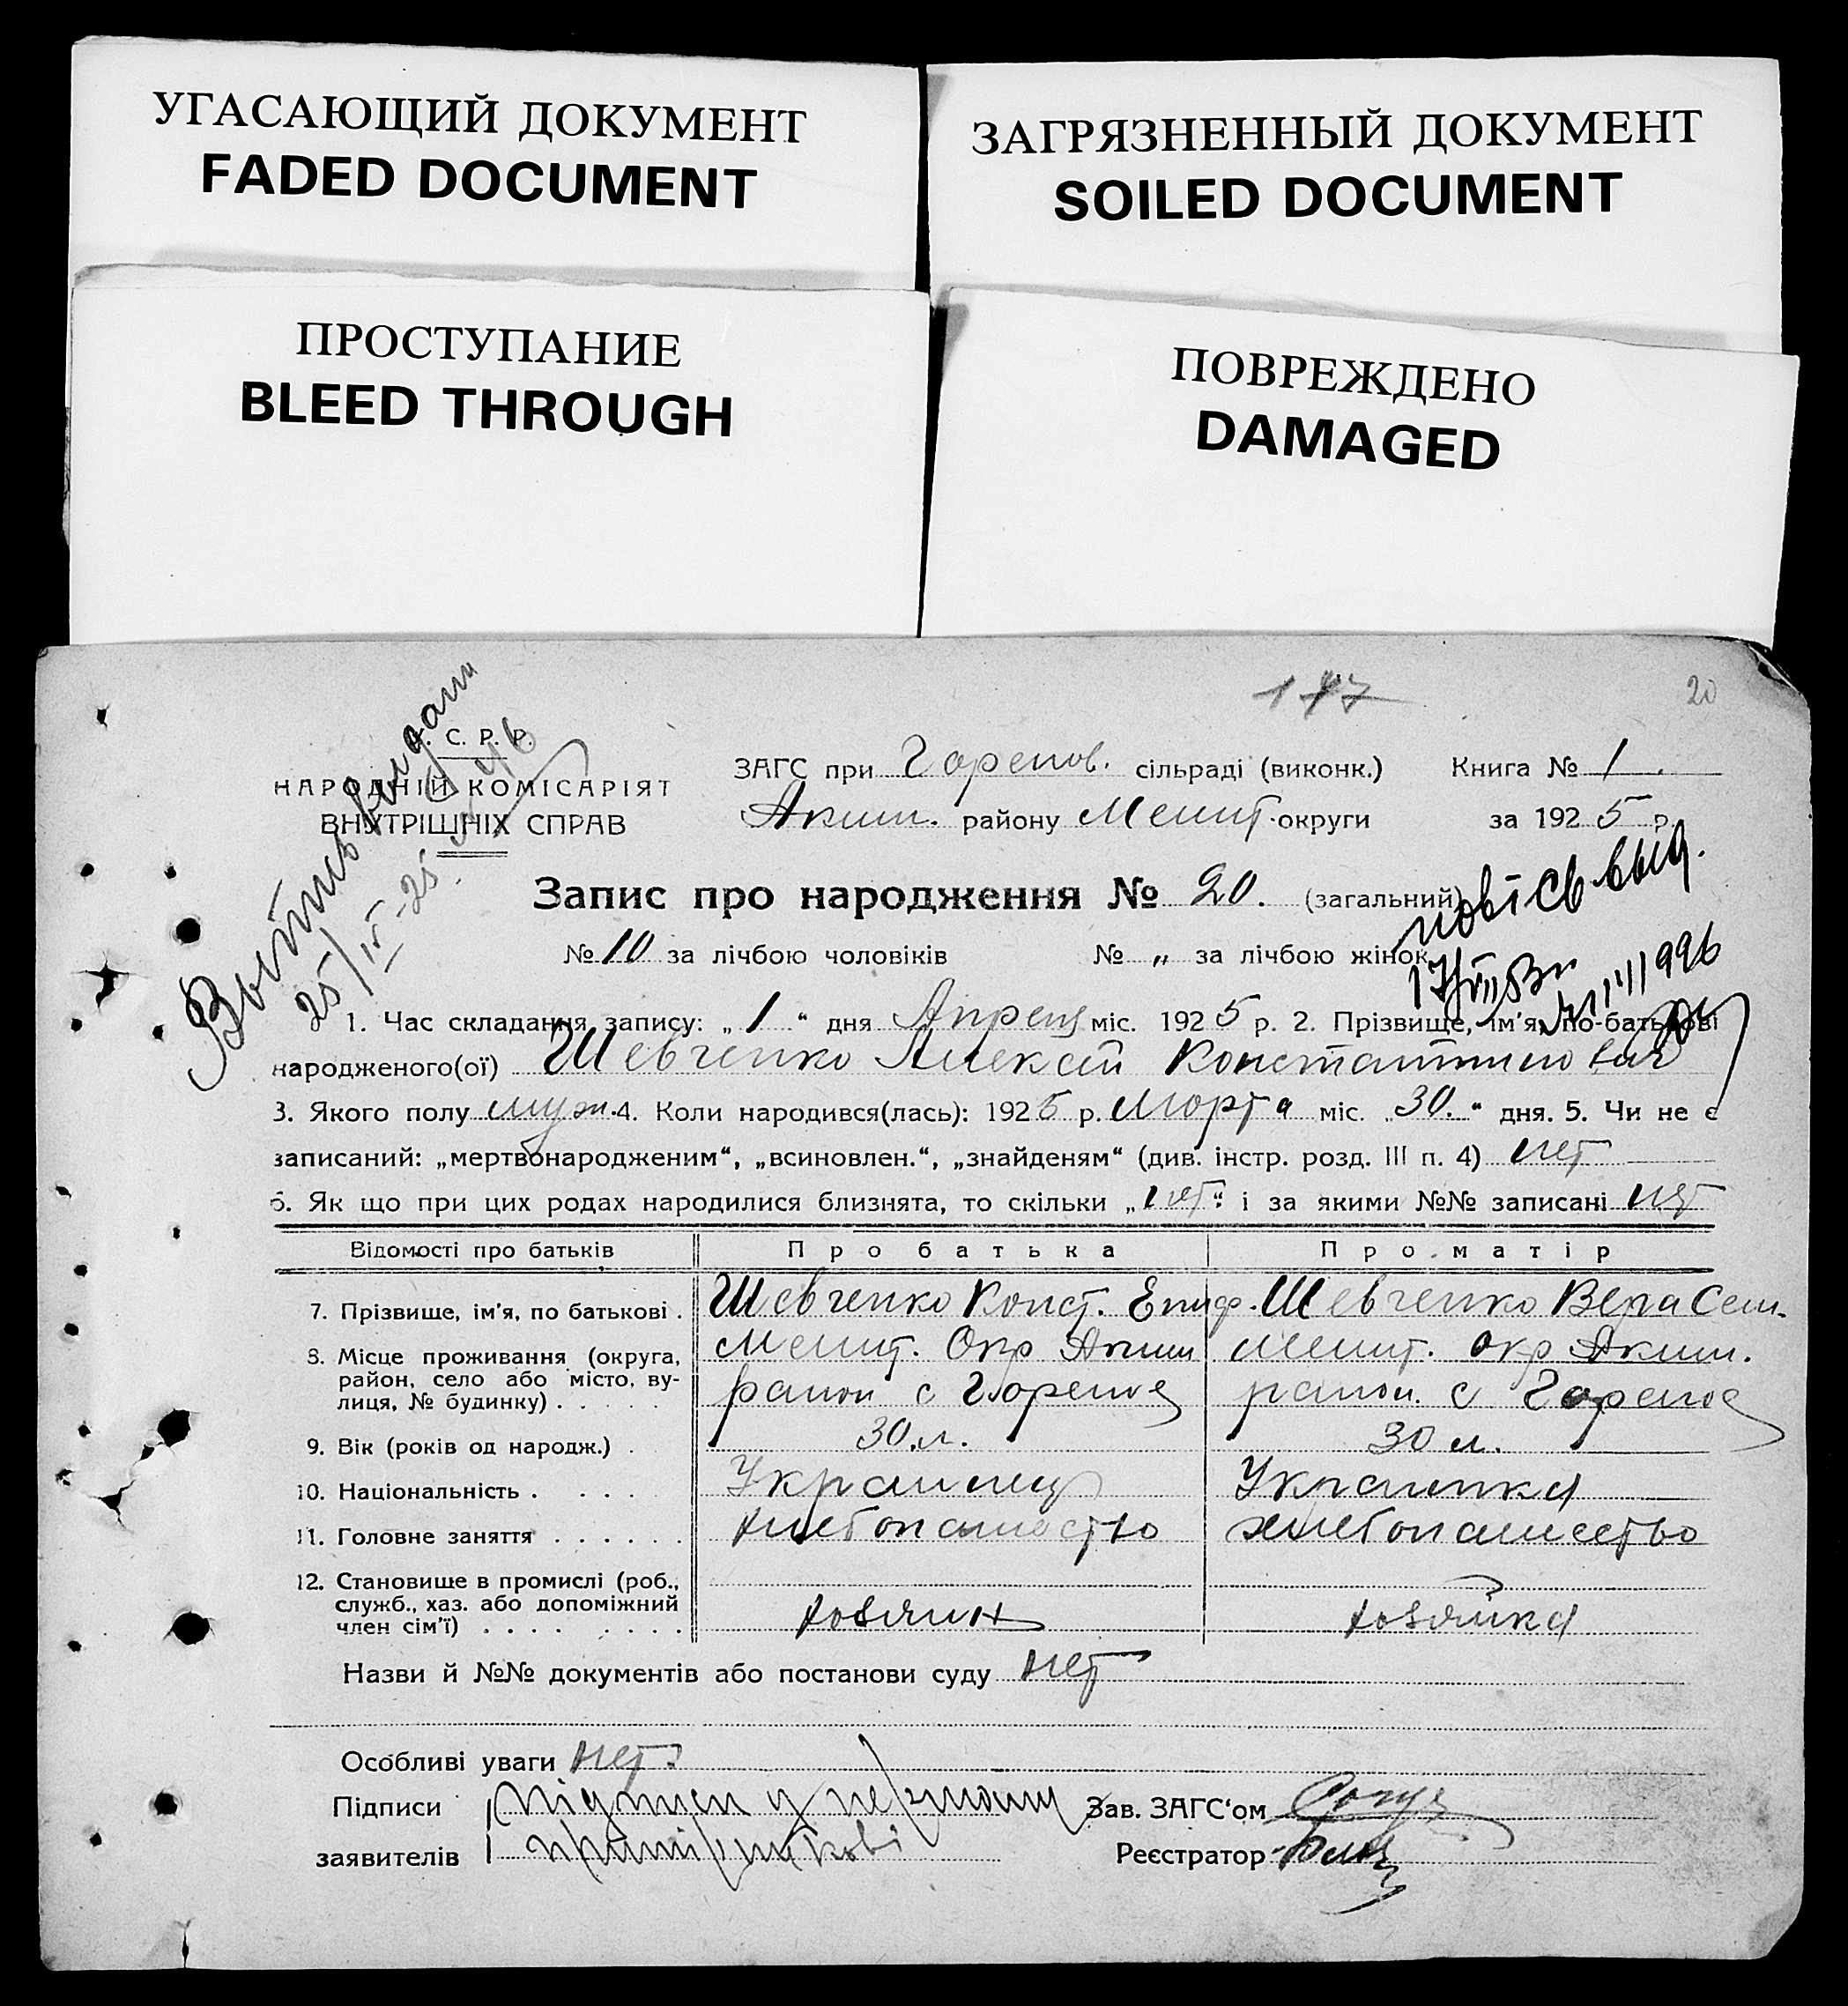 УГАСАЮЩИЙ ДОКУМЕНТ
FADED DOCUMENT
ЗАГРЯЗНЕННЫЙ ДОКУМЕНТ
SOILED DOCUMENT
ПРОСТУПАНИЕ
BLEED THROUGH
ПОВРЕЖДЕНО
DAMAGED
177
20
С. Р. Р.
НАРОДНІЙ КОМІСАРІЯТ
ВНУТРІШНІХ СПРАВ
ЗАГС при Горелов. сільраді (виконк.) Книга № 1.
Аким. району Мелит. округи за 1925 р.
Запис про народження № 20. (загальний)
№ 10 за лічбою чоловіків № „ за лічбою жінок
1. Час складання запису: „1“ дня Апреля міс. 1925 р. 2. Прізвище, ім'я, по-батькові
народженого(ої) Шевченко Алексей Константинович
3. Якого полу муж. 4. Коли народився(лась): 1925 р. Марта міс. „30.“ дня. 5. Чи не є
записаний: „мертвонародженим“, „всиновлен.“, „знайденям“ (див. інстр. розд. III п. 4) нет
6. Як що при цих родах народилися близнята, то скільки „нет“ і за якими №№ записані нет
Відомості про батьків Про батька Про матір
7. Прізвище, ім'я, по батькові . Шевченко Конст. Епиф. Шевченко Вера Сем.
8. Місце проживання (округа, район, село або місто, вулиця, № будинку) . . . . Мелит. Окр Аким район с Горелое Мелит. окр Аким. район. с Горелое
9. Вік (років од народж.) . 30 л. 30 л.
10. Національність . . . . Украинец Украинка
11. Головне заняття . . . . . . хлебопашество хлебопашество
12. Становище в промислі (роб., служб., хаз. або допоміжний член сім'ї) . . . . . . . . хозяин хозяйка
Назви й №№ документів або постанови суду нет
Особливі уваги нет
Підписи Підписи у першому Зав. ЗАГС'ом
заявителів примірникові Реєстратор
Выпись выдана
25/IV-25